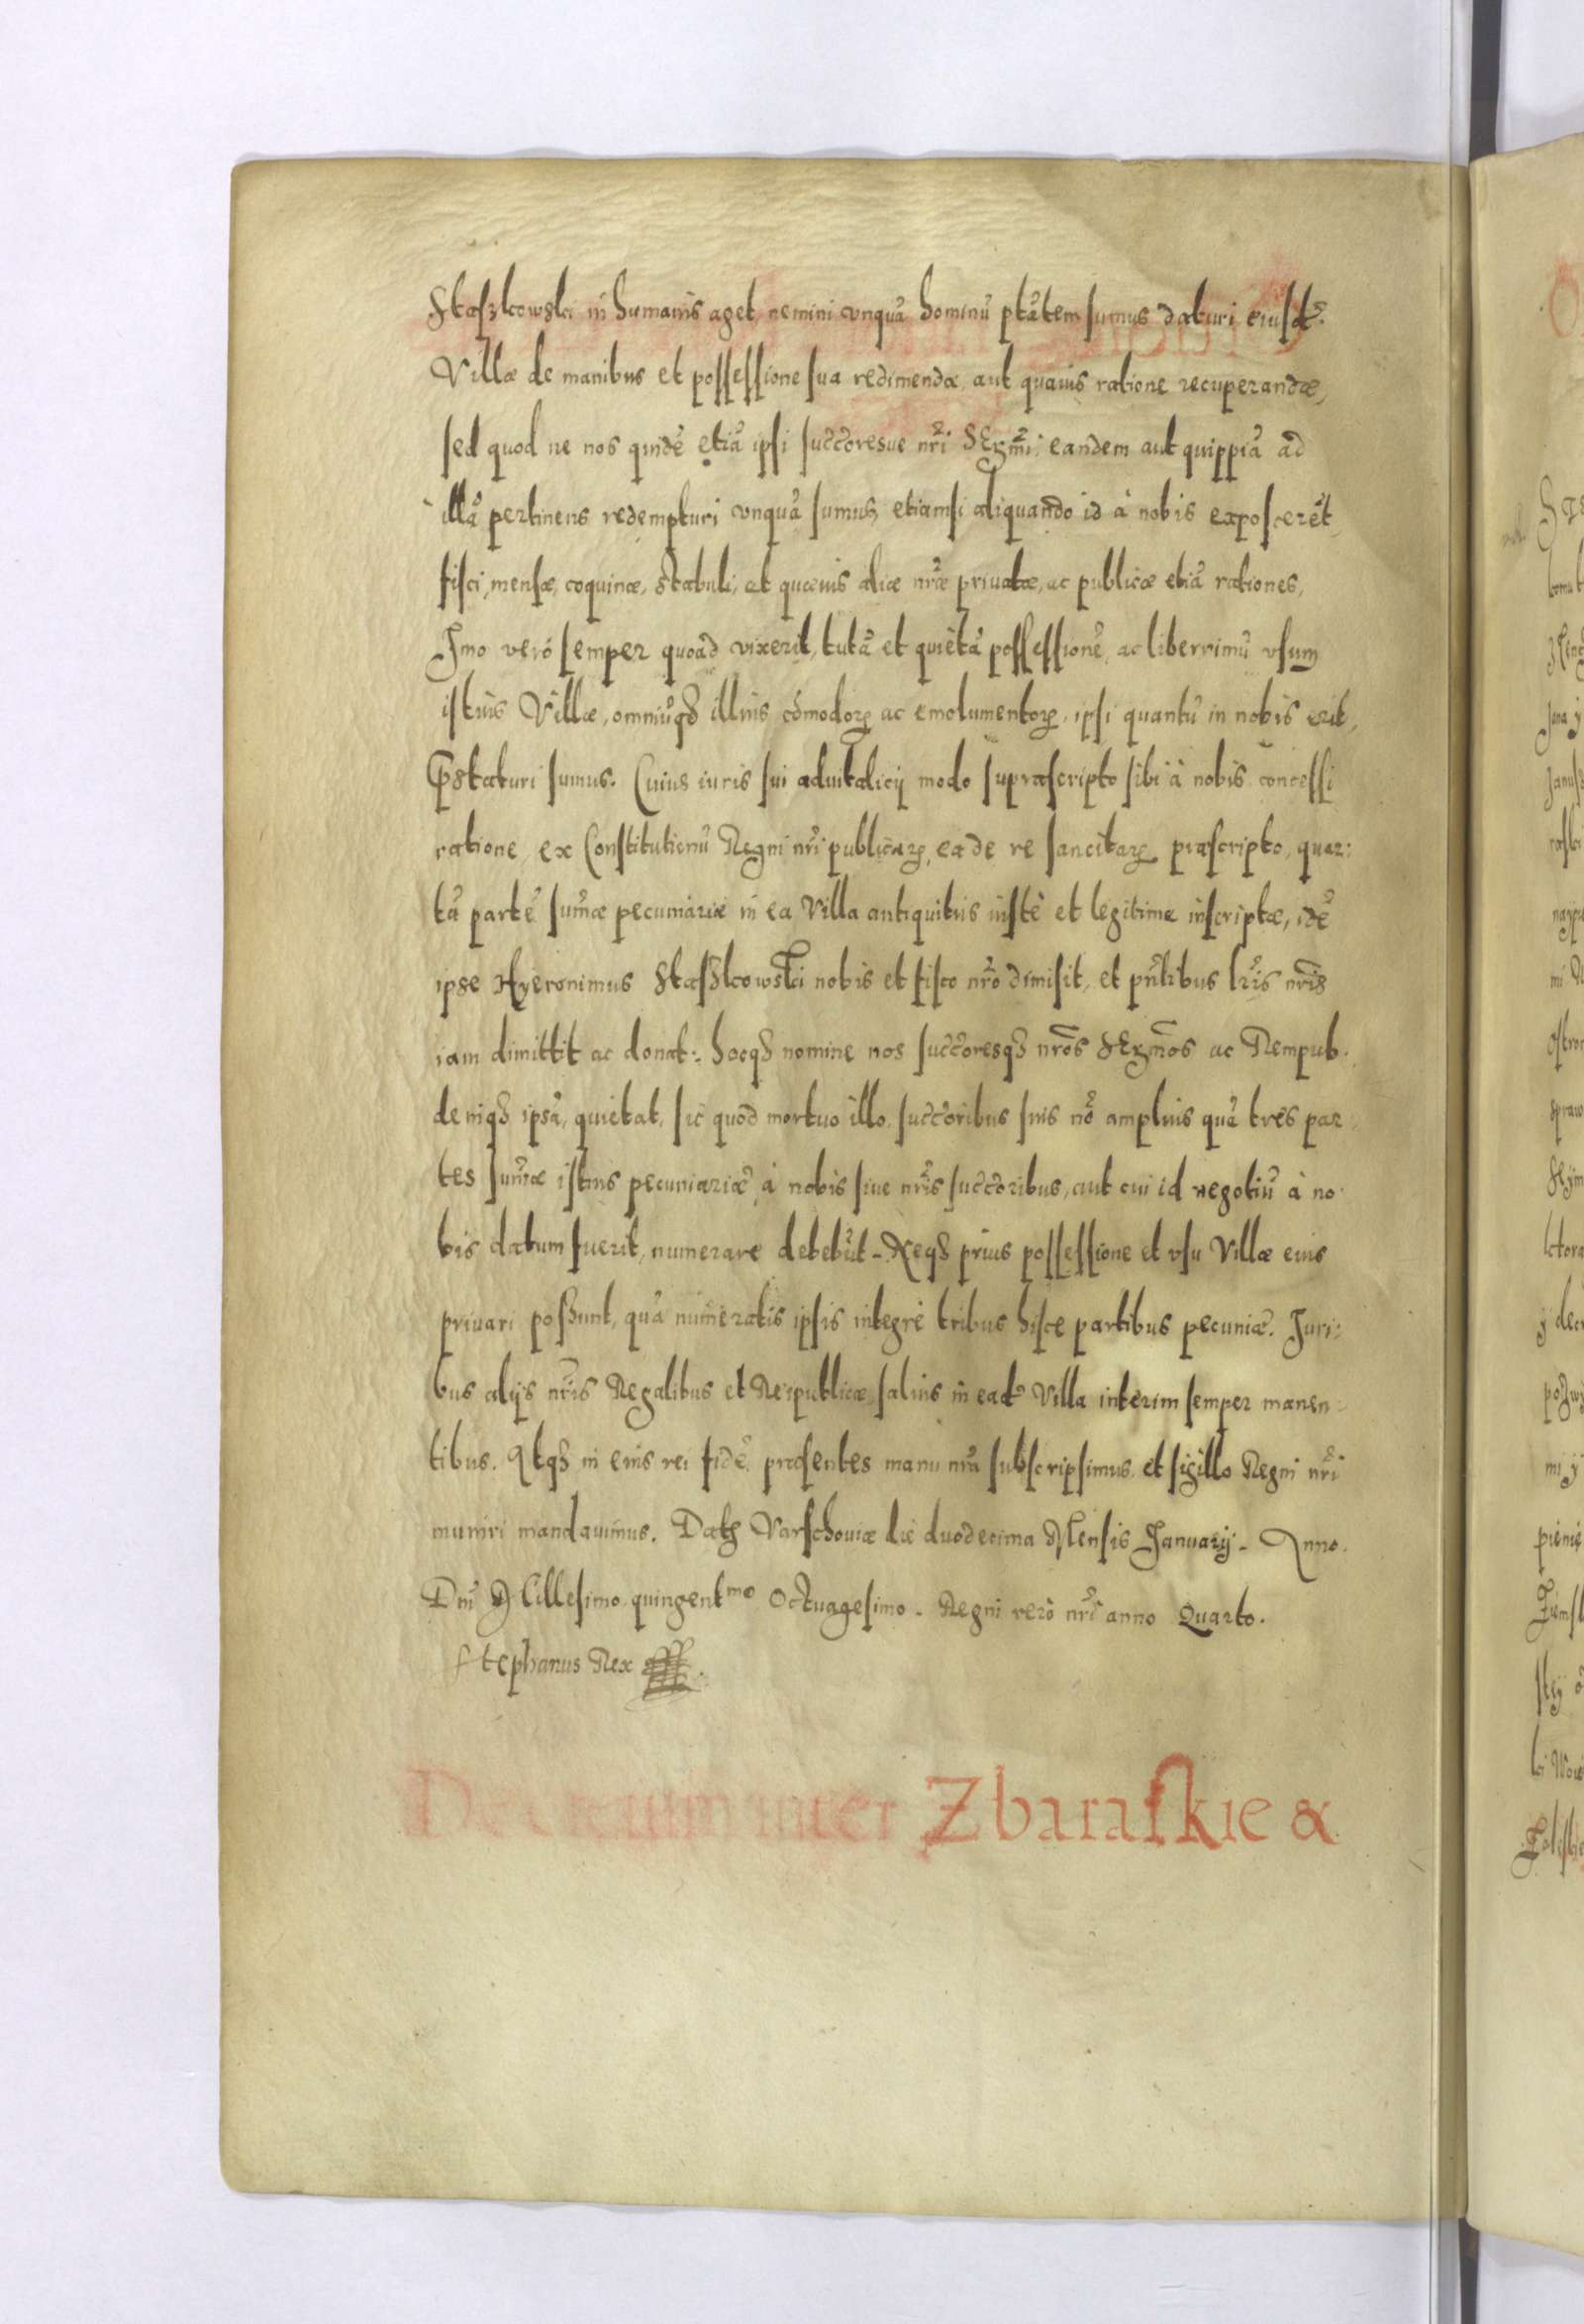 Staszkowski in humanis aget, nemini vnquã hominũ ptãtem sumus daturi eiusdẽ
Villæ de manibus et possessione sua redimendæ, aut quauis ratione recuperandæ,
sed quod ne nos quidẽ etiã ipsi succ̃oresue nr̃i Serm̃i, eandem aut quippiã ad
illã pertinens redempturi vnquã sumus, etiamsi aliquando id à nobis exposcerẽt,
fisci, mensæ, coquinæ, stabuli, et quæuis aliæ nr̃æ priuatæ, ac publicæ etiã rationes,
Imo verò semper quoad vixerit, tutã et quietã possessionẽ, ac liberrimũ vsum
istius Villæ, omniũqꝫ illius cõmodoꝝ ac emolumentoꝝ, ipsi quantũ in nobis erit,
Pr̃staturi sumus. Cuius iuris sui aduitalicij modo suprascripto sibi à nobis concessi
ratione, ex Constitutionũ Regni nr̃i publicaꝝ, ea de re sancitaꝝ præscripto, quar:
tã partẽ sum̃æ pecuniariæ in ea Villa antiquitus iustè et legitime inscriptæ, idẽ
ipse Hyeronimus Staszkowski nobis et fisco nr̃o dimisit, et pñtibus lr̃is nr̃is
iam dimittit ac donat: hocqꝫ nomine nos succ̃oresqꝫ nr̃os Serm̃os ac Rempub.
deniqꝫ ipsã, quietat, sic quòd mortuo illo, succ̃oribus suis nõ amplius quã tres par
tes sum̃æ istius pecuniariæ, à nobis siue nr̃is succ̃oribus, aut cui id negotiũ à no
bis datum fuerit, numerare debebũt. Neqꝫ prius possessione et vsu Villæ eius
priuari poßunt, quã numeratis ipsis integrè tribus hisce partibus pecuniæ. Juri:
bus alijs nr̃is Regalibus et Reipublicæ saluis in eadẽ Villa interim semper manen
tibus. Atqꝫ in eius rei fidẽ præsentes manu nr̃a subscripsimus, et sigillo Regni nr̃i
muniri mandauimus. Datꝫ Varschouiæ die duodecima Mensis Januarij. Anno.
Dñi Millesimo quingentmo Octuagesimo. Regni verò nr̃i anno Quarto.
Stephanus Rex
Decretum inter Zbaraskie &